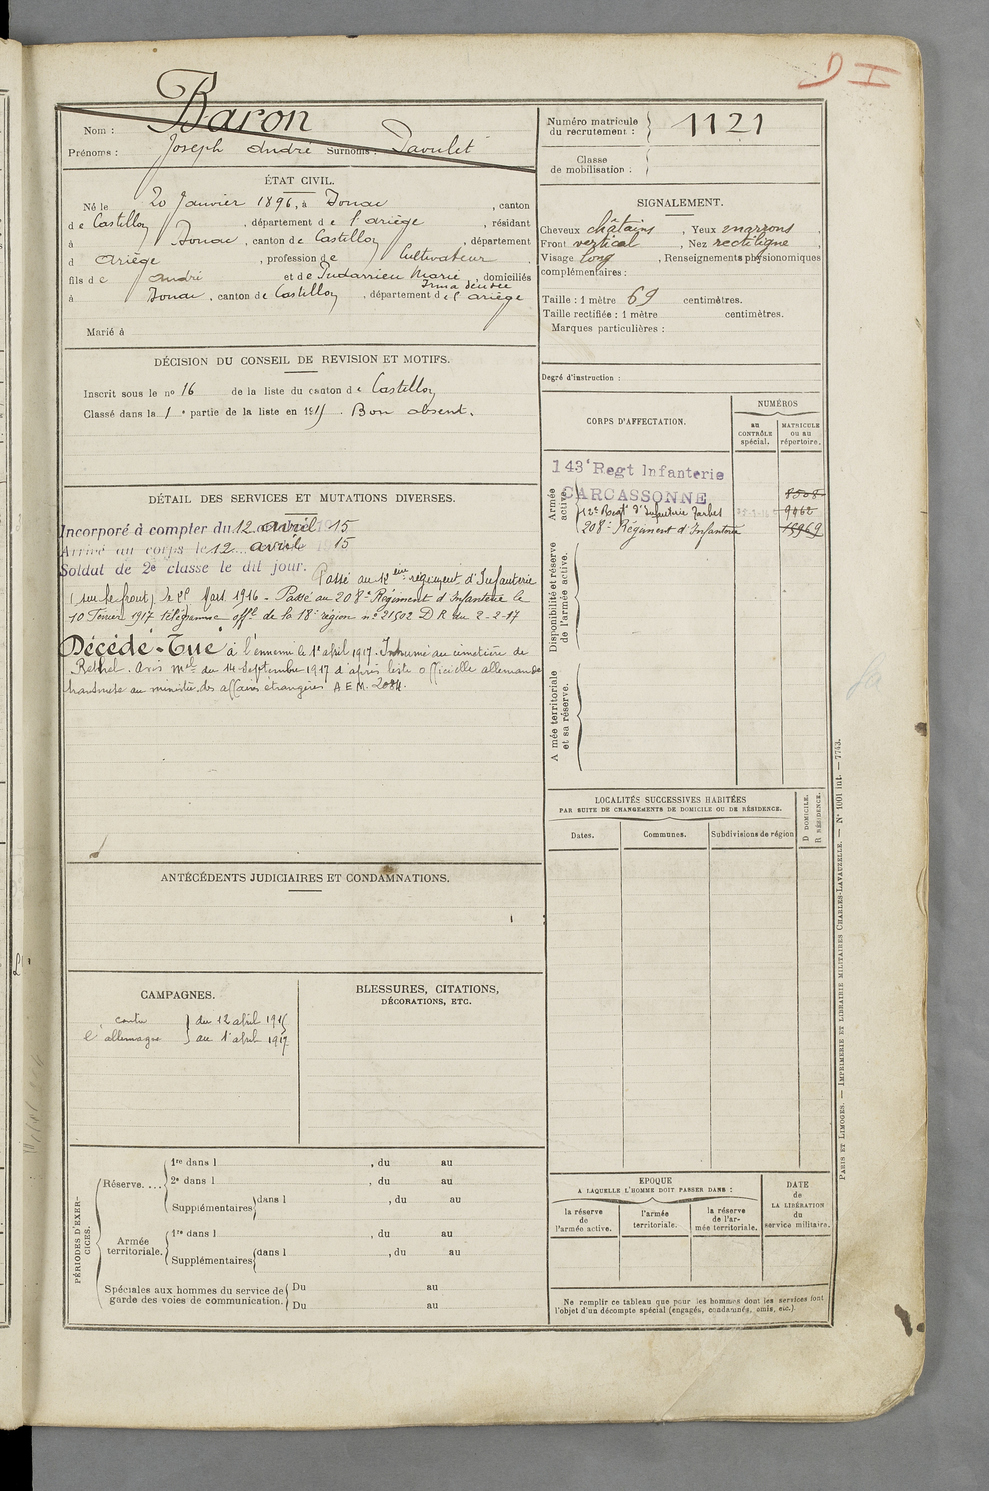 D I
Nom : Baron
Prénoms : Joseph André Surnoms : Paoulet
Numéro matricule
du recrutement : 1121
Classe
de mobilisation :
ÉTAT CIVIL.
Né le 20 Janvier 1896, à Donac, canton
de Castillon, département de l'ariège, résidant
à Donac, canton de Castillon, département
d Ariège, profession de Cultivateur,
fils de André et de Pudarrieu Marie, domiciliés
à Donac, canton de Castillon, département de l'ariège
Marié à
SIGNALEMENT.
Cheveux châtains, Yeux marrons,
Front vertical, Nez rectiligne,
Visage long, Renseignements physionomiques
complémentaires :
Taille : 1 mètre 69 centimètres.
Taille rectifiée : 1 mètre centimètres.
Marques particulières :
Degré d'instruction :
DÉCISION DU CONSEIL DE REVISION ET MOTIFS.
Inscrit sous le no 16 de la liste du canton de Castillon
Classé dans la 1e partie de la liste en 1915. Bon absent.
CORPS D'AFFECTATION.
NUMÉROS
au
CONTRÔLE
spécial.
MATRICULE
ou au
répertoire.
Armée
active.
143e Regt Infanterie
CARCASSONNE 8508
12e Regt d'Infanterie Tarbes 9062
208e Régiment d'Infanterie 15969
Disponibilité et réserve
de l'armée active.
A mée territoriale
et sa réserve.
DÉTAIL DES SERVICES ET MUTATIONS DIVERSES.
Incorporé à compter du 12 avril 1915
Arrivé au corps le 12 avril 1915
Soldat de 2e classe le dit jour. Passé au 12eme régiment d'Infanterie
(sur le front) le Mars 1916 - Passé au 208e Régiment d'Infanterie le
10 Février 1917 télégramme offel de la 18e région no 21502 D R du 2-2-17
Décédé - Tué à l'ennemi le 1er avril 1917. Inhumé au cimetière de
Rethel. Avis mel du 14 Septembre 1917 d'après liste officielle allemande
transmise au ministre des affaires étrangères A E M. 2084.
LOCALITÉS SUCCESSIVES HABITÉES
PAR SUITE DE CHANGEMENTS DE DOMICILE OU DE RÉSIDENCE.
Dates.
Communes.
Subdivisions de région
D DOMICILE.
R RÉSIDENCE.
ANTÉCÉDENTS JUDICIAIRES ET CONDAMNATIONS.
CAMPAGNES.
contre } du 12 avril 1915
l'allemagne } au 1er avril 1917
BLESSURES, CITATIONS,
DÉCORATIONS, ETC.
PÉRIODES D'EXER-
CICES.
Réserve....
1re dans l , du au
2e dans l , du au
Supplémentaires dans l , du au
Armée
territoriale.
1re dans l , du au
Supplémentaires dans l , du au
Spéciales aux hommes du service de
garde des voies de communication.
Du au
Du au
EPOQUE
A LAQUELLE L'HOMME DOIT PASSER DANS :
la réserve
de
l'armée active.
l'armée
territoriale.
la réserve
de l'ar-
mée territoriale.
DATE
de
LA LIBÉRATION
du
service militaire.
Ne remplir ce tableau que pour les hommes dont les services font
l'objet d'un décompte spécial (engagés, condamnés, omis, etc.)
PARIS ET LIMOGES. — IMPRIMERIE ET LIBRAIRIE MILITAIRES CHARLES-LAVAUZELLE. — N° 1001 int. — 7743.